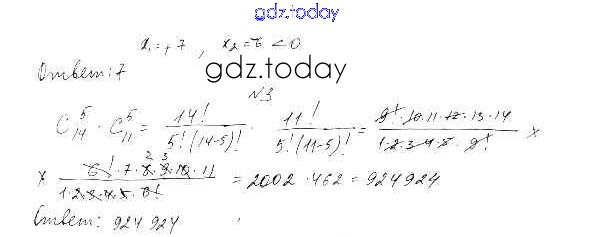 gdz.today
x₁ = +7, x₂ = -6 < 0
Ответ: 7
gdz.today
N3
C₁₄⁵ · C₁₁⁵ = 14! / 5!(14-5)! · 11! / 5!(11-5)! = 9!·10·11·12·13·14 / 1·2·3·4·5·9! ×
× 6!·7·8·9·10·11 / 1·2·3·4·5·6! = 2002 · 462 = 924924
Ответ: 924 924